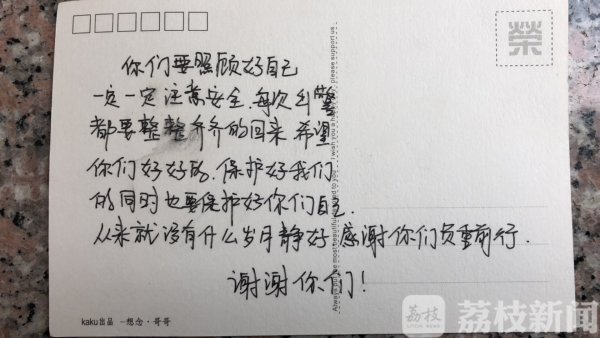 榮
你们要照顾好自己
一定一定注意安全.每次出警
都要整整齐齐的回来.希望
你们好好的.保护好我们
的同时也要保护好你们自己.
从来就没有什么岁月静好 感谢你们负重前行.
谢谢你们！
kaku出品 一想念·哥哥
荔枝 荔枝新闻